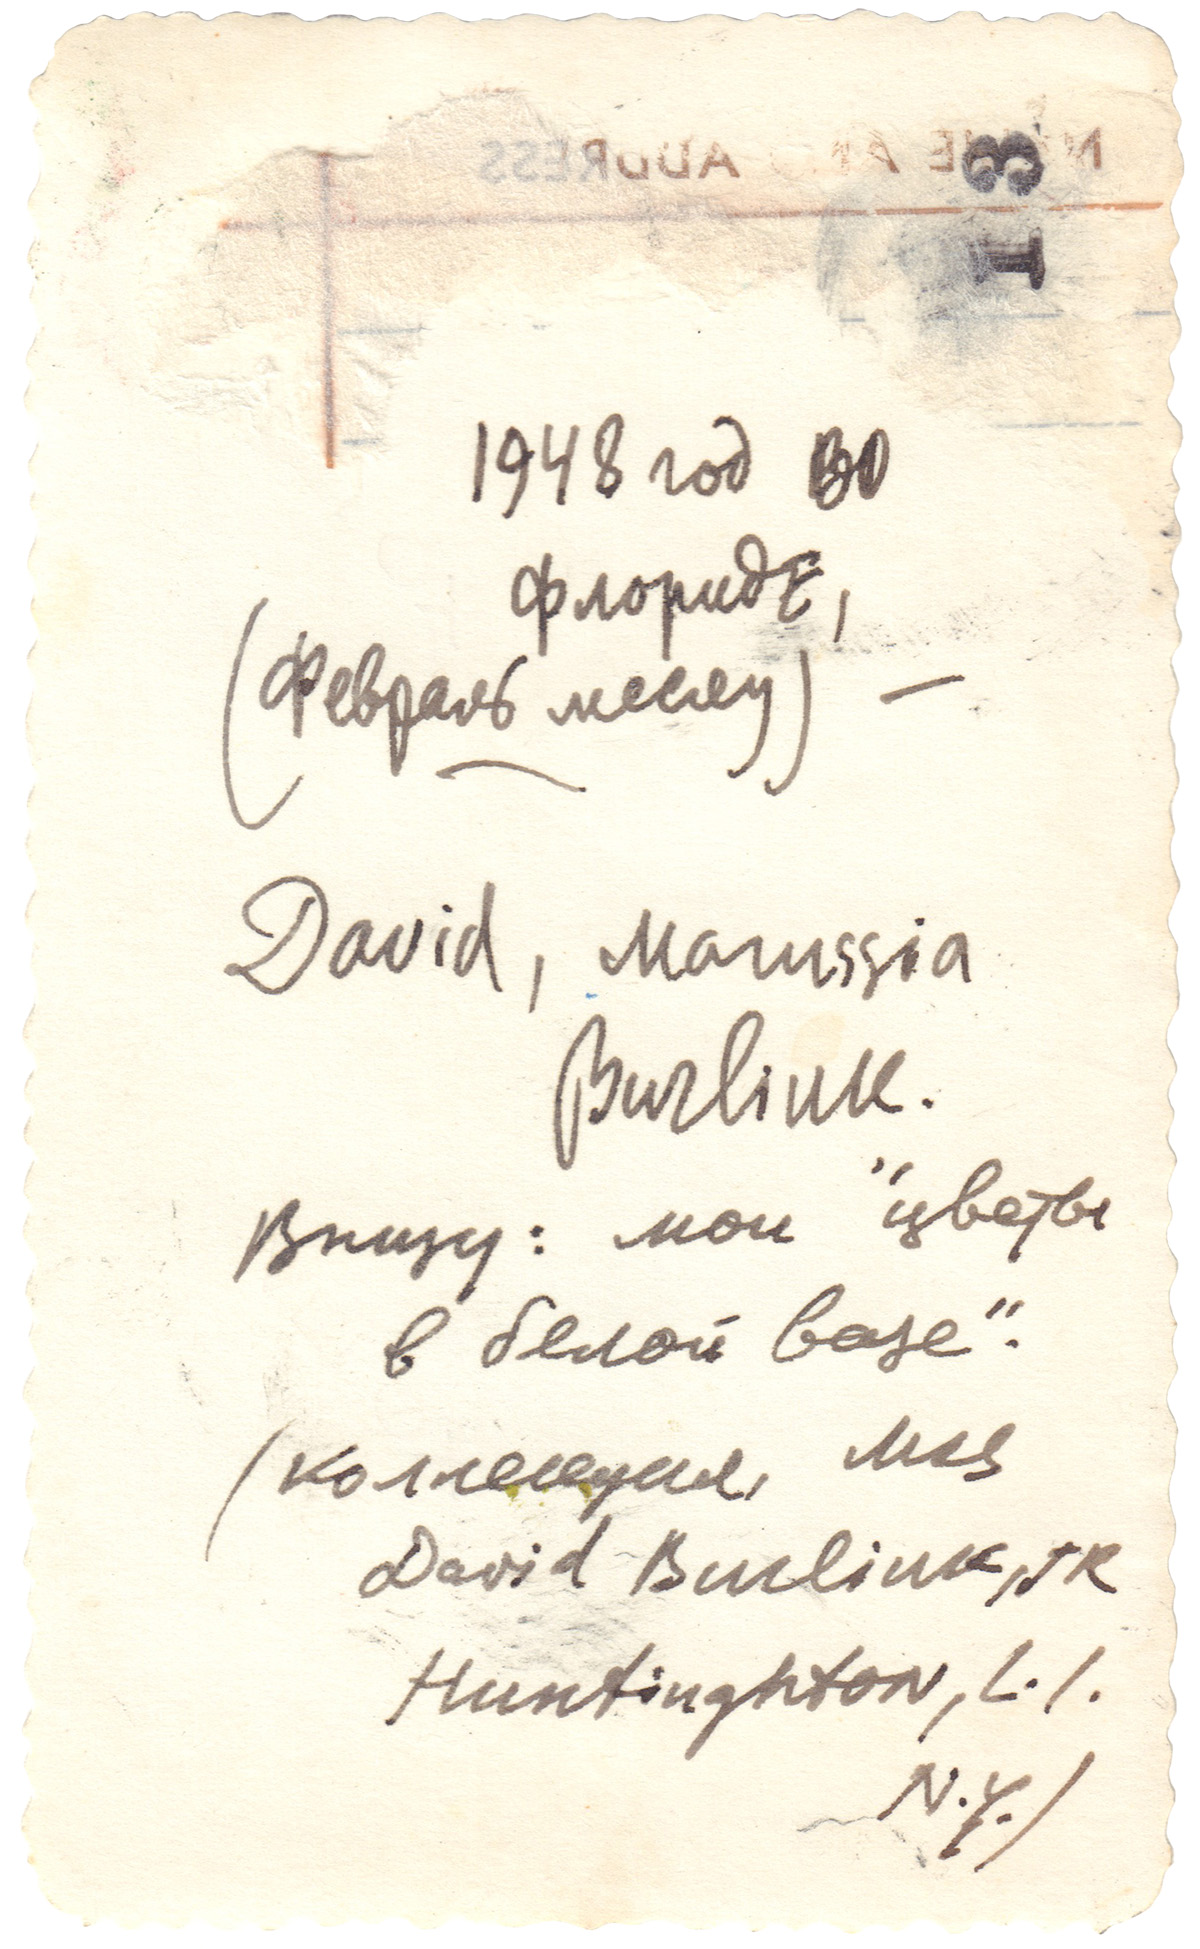 NAME AND ADDRESS
13
1948 год во
Флориде,
(Февраль месяц) —
David, Marussia
Burliuk.
Внизу: мои "цветы
в белой вазе".
(коллекция, Mrs
David Burliuk, JR
Huntinghton, L.I.
N.Y.)